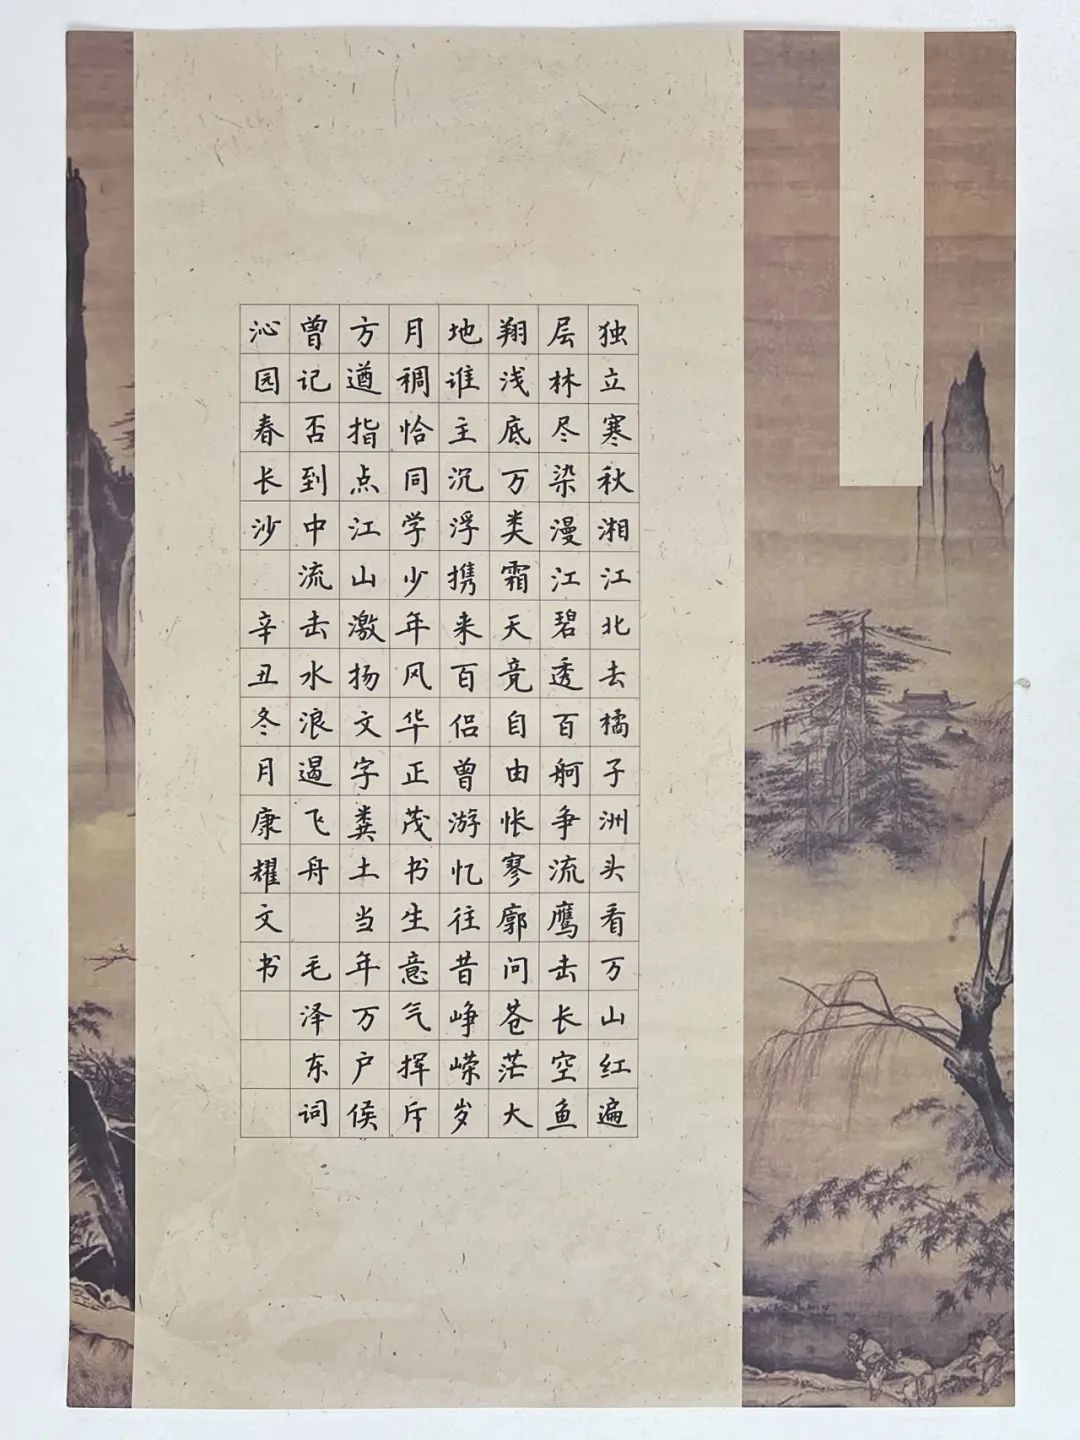 独立寒秋湘江北去橘子洲头看万山红遍
层林尽染漫江碧透百舸争流鹰击长空鱼
翔浅底万类霜天竞自由怅寥廓问苍茫大
地谁主沉浮携来百侣曾游忆往昔峥嵘岁
月稠恰同学少年风华正茂书生意气挥斥
方遒指点江山激扬文字粪土当年万户侯
曾记否到中流击水浪遏飞舟 毛泽东词
沁园春长沙 辛丑冬月康耀文书